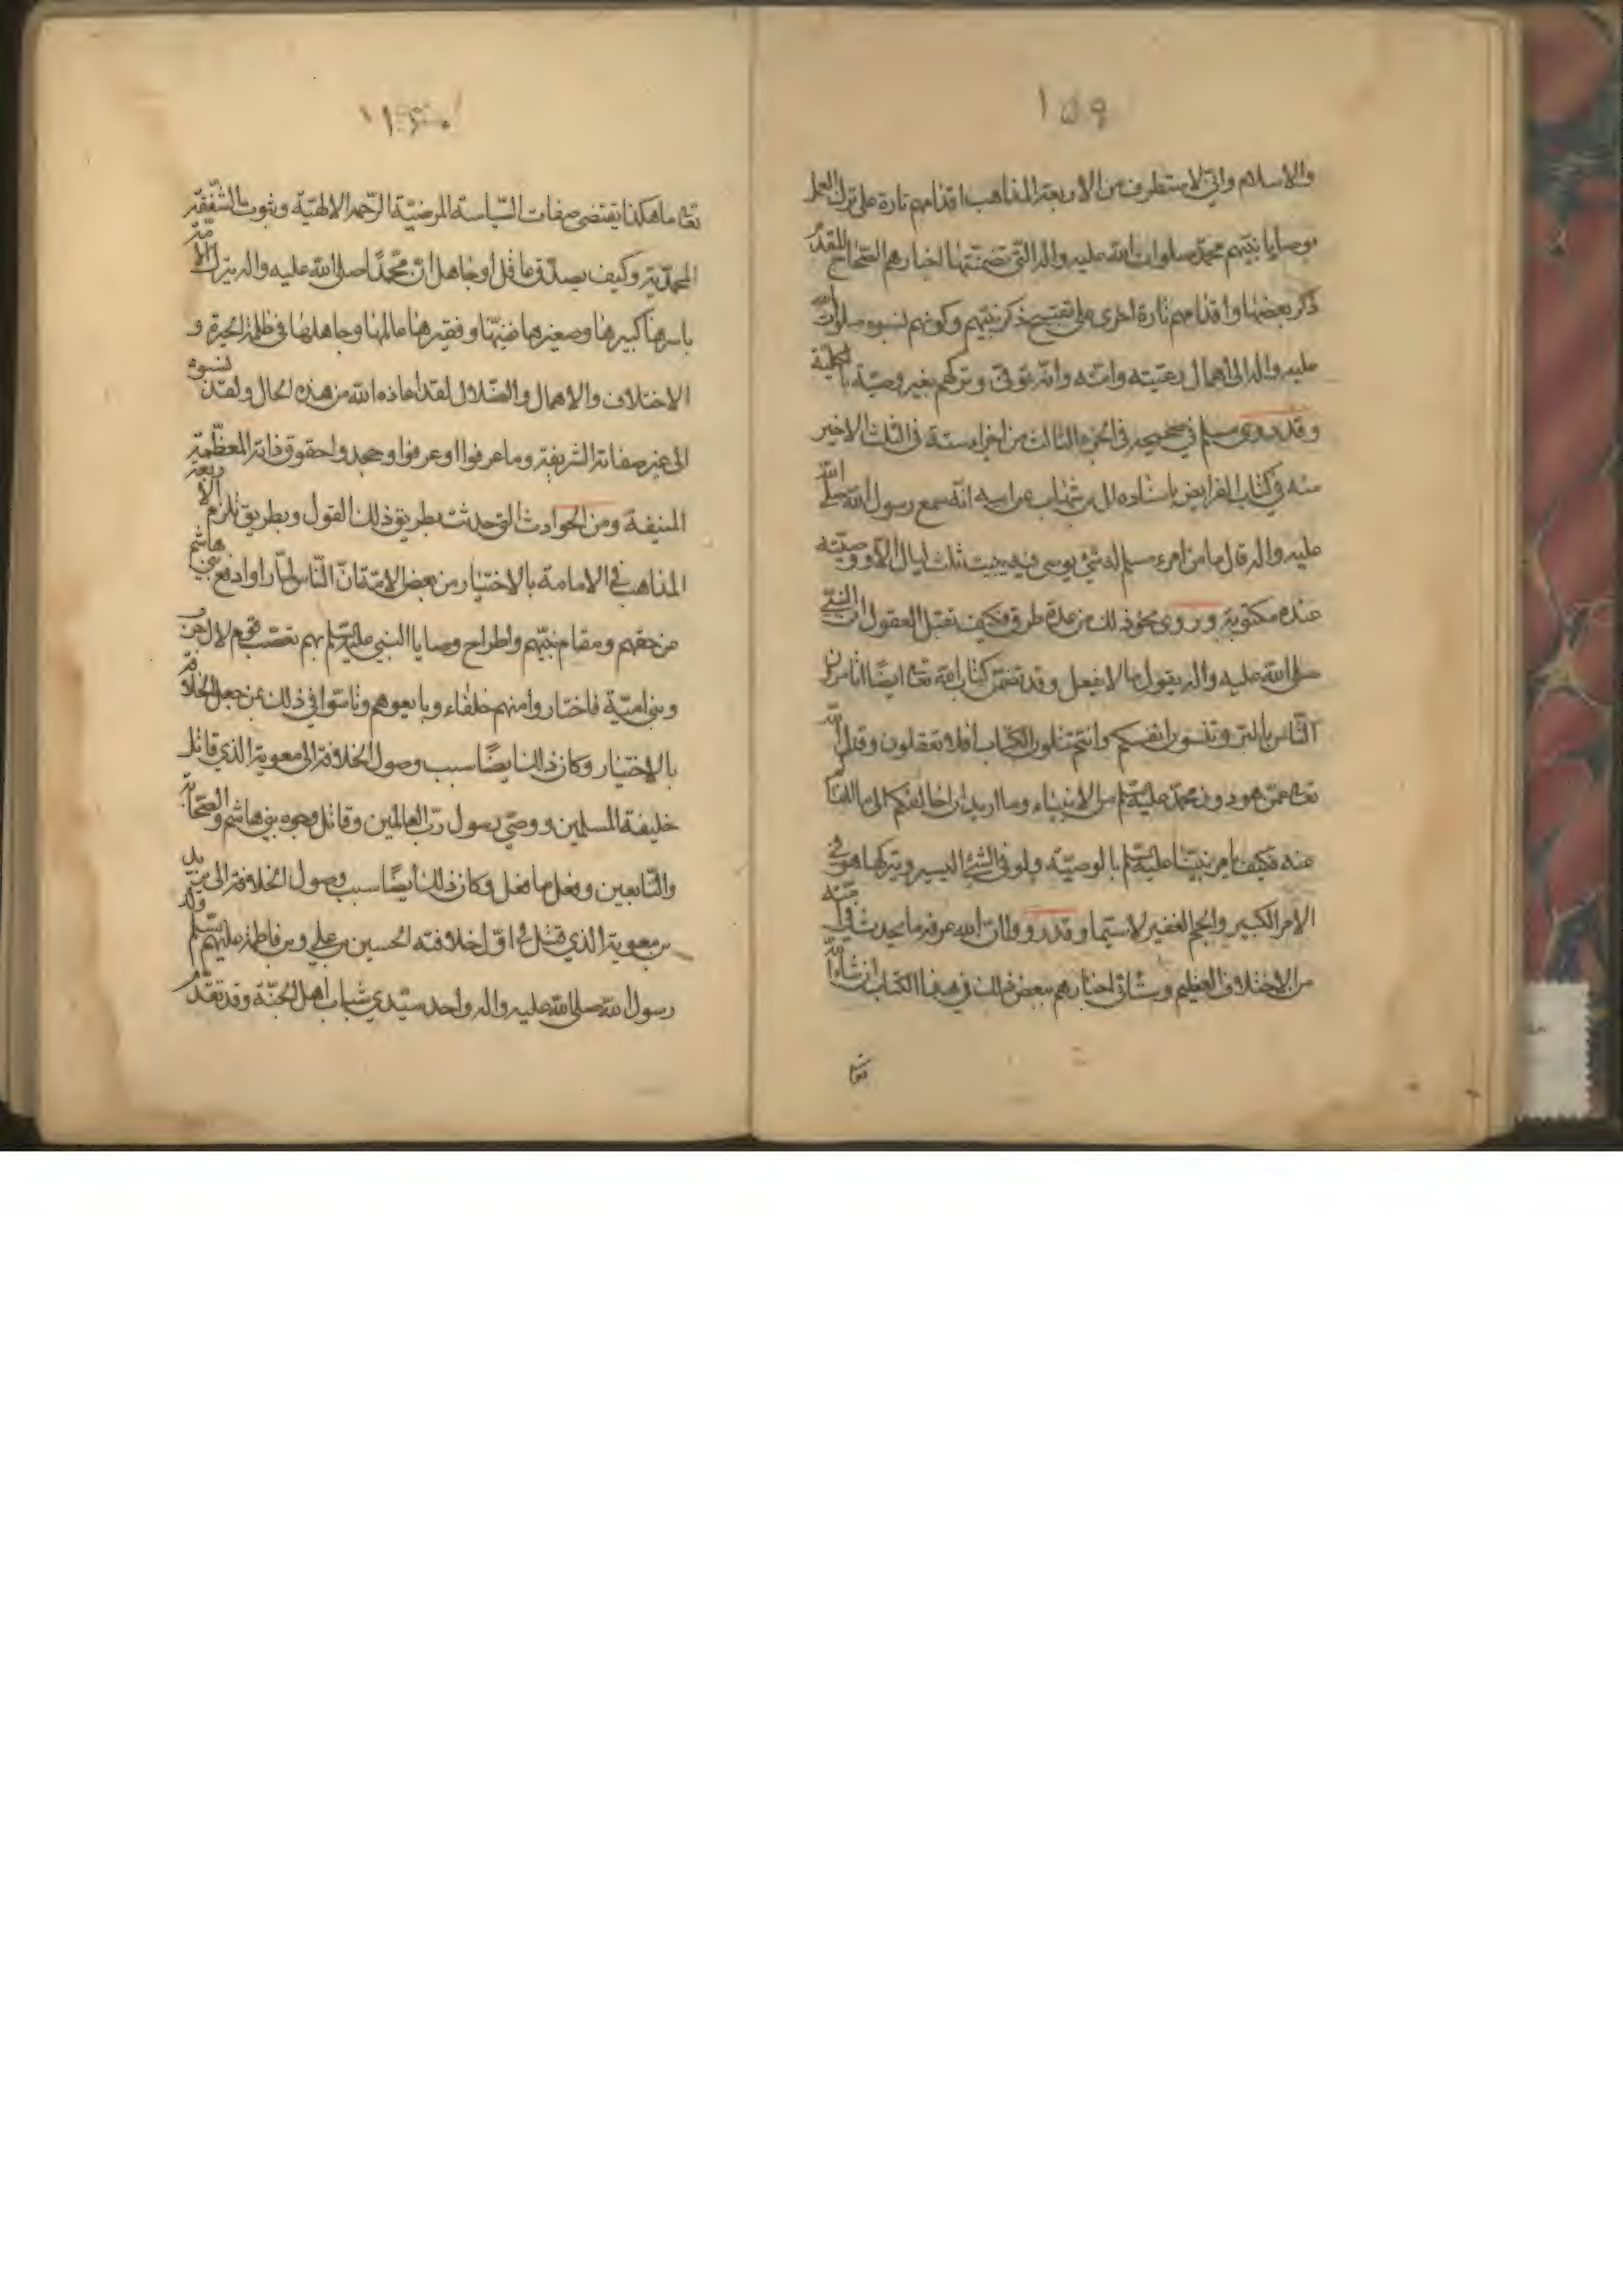 ١٥٩
والاسلام وانّي لاستطرف من الاربعة المذاهب اقدامهم تارة على ترك العمل
بوصايا نبيّهم محمّد صلوات الله عليه واله التي تضمّنتها اخبارهم الصّحاح المتقدّم
ذكر بعضها واقدامهم تارة اخرى على تقبيح ذكر نبيّهم وكونهم نسبوه صلوات الله
عليه واله الى اهمال رعيّته وامّته وانّه توفّى وتركهم بغير وصيّة بالكليّة
وقد روى مسلم في صحيحه في الجزء الثالث من اجزاء ستة في الثلث الاخير
منه في كتاب الفرايض باسناده الى بن شهاب عن ابيه انّه سمع رسول الله صلى الله
عليه واله قال ما من امرء مسلم له شئ يوصى فيه يبيت ثلث ليال الّا ووصيّته
عنده مكتوبة وروى نحو ذلك من عدة طرق فكيف تقبل العقول انّ النبيّ
صلى الله عليه واله يقول ما لا يفعل وقد تضمّن كتاب الله تعا ايضًا اتامرون
النّاس بالبرّ وتنسون انفسكم وانتم تتلون الكتاب افلا تعقلون وقد قال الله
تعا عمّن هو دون محمّد عليه السّلم من الانبياء وما اريد ان اخالفكم الى ما انهاكم
عنه فكيف يامر نبيّنا عليه السّلم بالوصيّة ولو في الشئ اليسير ويتركها هو في
الامر الكبير والجم الغفير لا سيّما وقد رووا انّ الله عرفه ما يحدث في امّته
من الاختلاف العظيم وستاتى اخبارهم ببعض ذلك في هذا الكتاب انشاء الله
تعا
١٦٠
تعا ما هكذا يقتضى صفات السّياسة المرضيّة الرّحمة الالهيّة وثبوت الشّفقة
المحمّدية وكيف يصدّق عاقل او جاهل انّ محمّدًا صلى الله عليه واله يترك الامّة
باسرها كبيرها وصغيرها غنيّها وفقيرها عالمها وجاهلها في ظلمة الحيرة و
الاختلاف والاهمال والضّلال لقد اعاذه الله من هذه الحال ولقد نسبوه
الى غير صفاته الشريفة وما عرفوا او عرفوا وجحدوا حقوق ذاته المعظّمة
المنيفة ومن الحوادث التي حدثت بطريق ذلك القول وبطريق تلزم الاربعة
المذاهب في الامامة بالاختيار من بعض الامّة انّ النّاس لمّا راوا دفع بني هاشم
عن حقهم ومقام نبيّهم واطراح وصايا النبي عليه السّلم بهم تعصّب قوم لال حرب
وبنى اميّة فاختاروا منهم خلفاء وبايعوهم وتاسّوا في ذلك بمن جعل الخلافة
بالاختيار وكان ذلك ايضًا سبب وصول الخلافة الى معوية الذي قاتل
خليفة المسلمين ووصّي رسول ربّ العالمين وقاتل وجوه بني هاشم والصّحابة
والتّابعين وفعل ما فعل وكان ذلك ايضًا سبب وصول الخلافة الى يزيد
بن معوية الذي قتل في اوّل خلافته الحسين بن علي وبن فاطمة عليهم السّلم ولد
رسول الله صلى الله عليه واله واحد سيّدي شباب اهل الجنّة وقد تقدّم